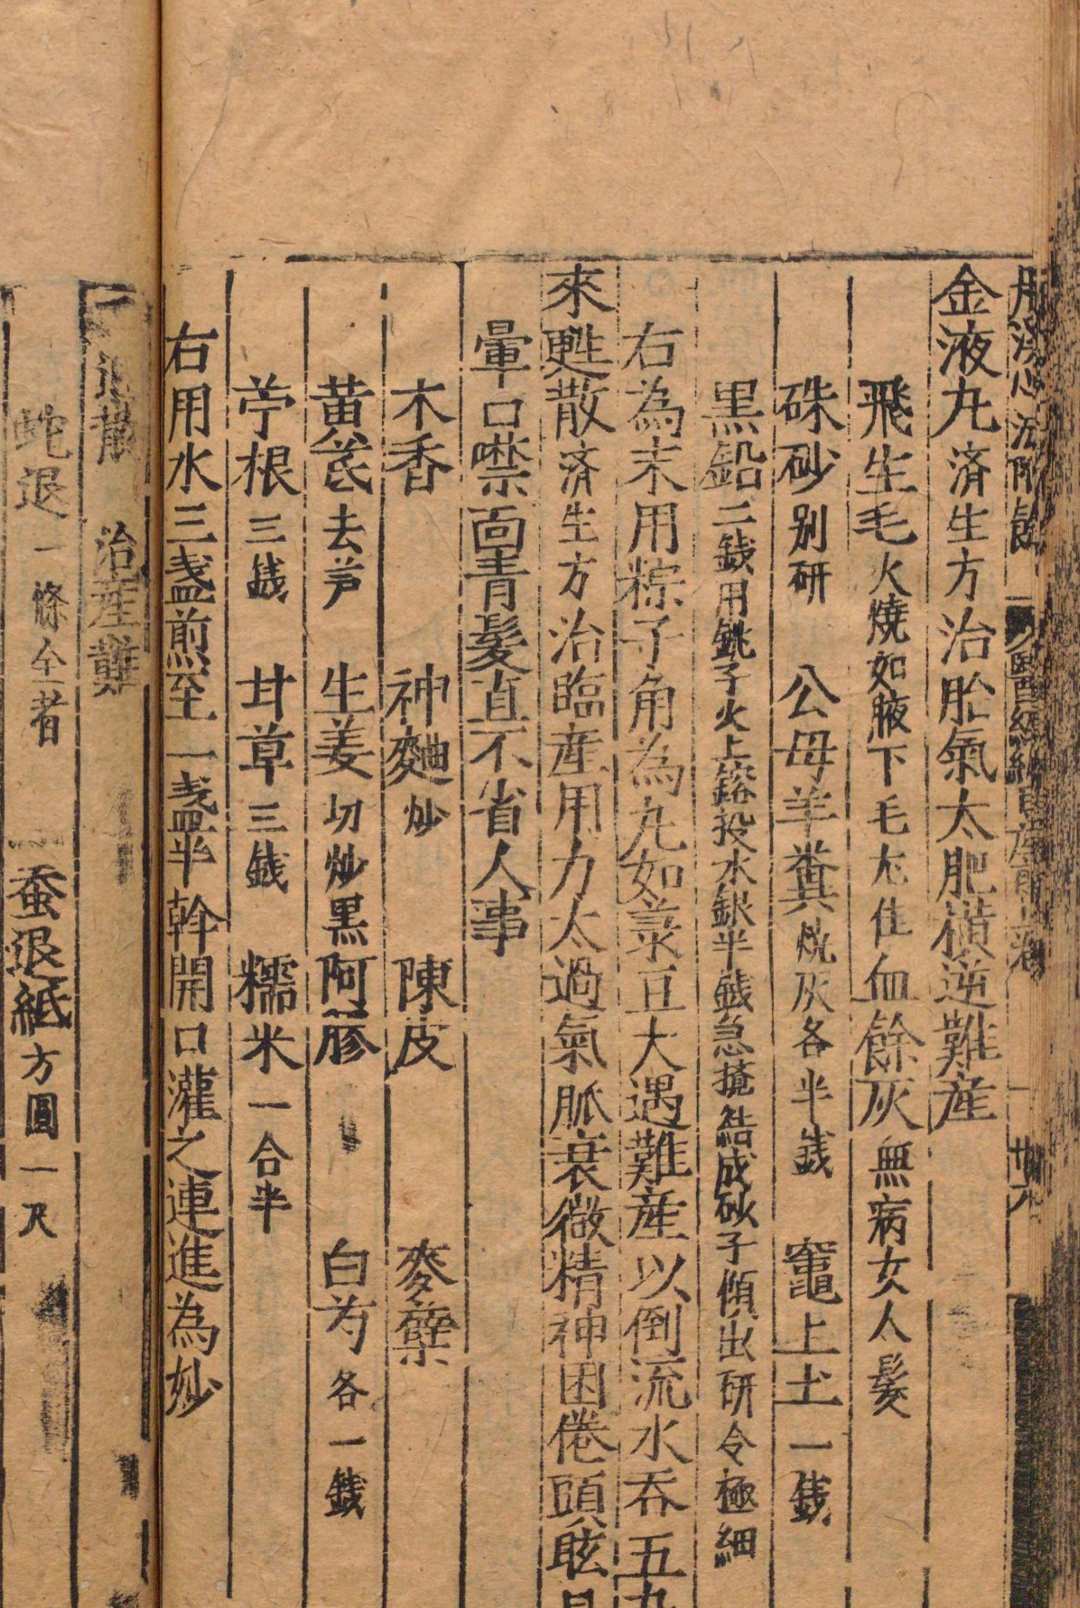 丹溪心法附餘
金液丸 済生方 治胎氣太肥橫逆難産
飛生毛 火燒如腋下毛尤佳 血餘灰 無病女人髮
硃砂 别研 公母羊糞 燒灰各半錢 竈上土 一錢
黑鉛 二錢用銚子火上鎔投水銀半錢急攪結成砂子傾出研令極細
右為末用粽子角為丸如菉豆大遇難産以倒流水吞五丸
來甦散 済生方 治臨産用力太過氣脈衰微精神困倦頭眩目
暈口噤面青髮直不省人事
木香 神麯 炒 陳皮 麥糵
黃芪 去芦 生姜 切炒黑 阿膠 白芍 各一錢
苧根 三錢 甘草 三錢 糯米 一合半
右用水三盞煎至一盞半幹開口灌之連進為妙
二退散 治産難
蛇退 一條全者 蚕退紙 方圓一尺